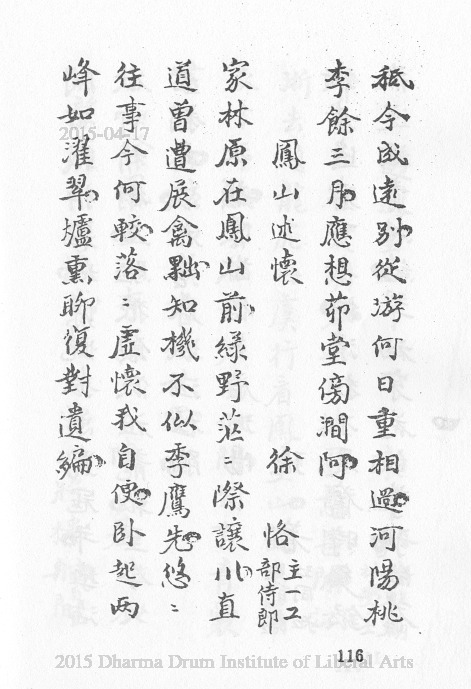 秪今成遠別從游何日重相過河陽桃
李餘三月應想茆堂傍澗阿
鳳山述懷 徐恪 主一工部侍郎
家林原在鳳山前綠野茫〻際讓川直
道曾遭展禽黜知機不似季鷹先悠〻
往事今何較落〻虛懷我自便卧起兩
峰如濯翠爐熏聊復對遺編
116
2015-04-17
2015 Dharma Drum Institute of Liberal Arts